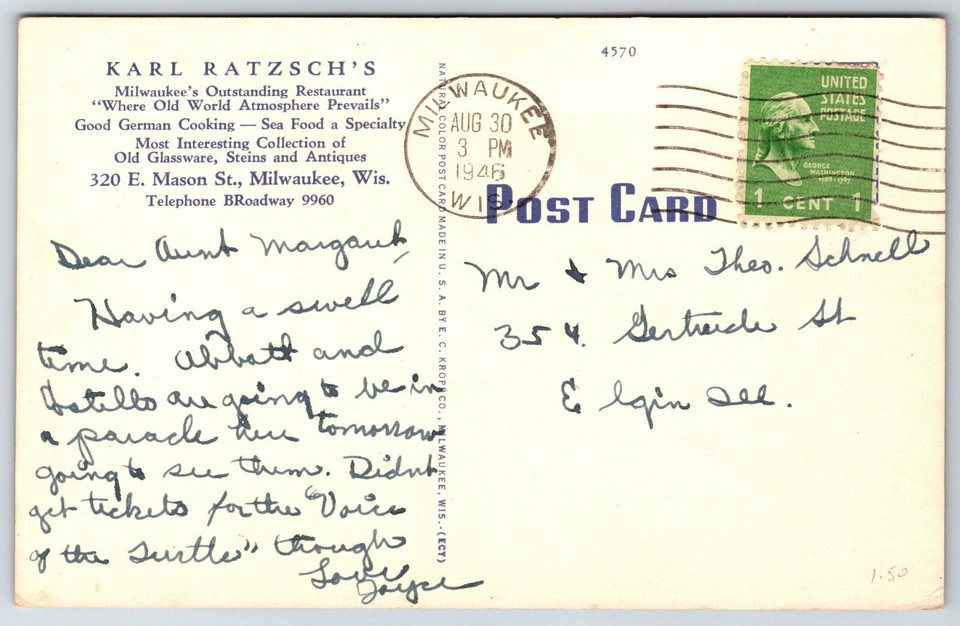 KARL RATZSCH'S
Milwaukee's Outstanding Restaurant
"Where Old World Atmosphere Prevails"
Good German Cooking — Sea Food a Specialty
Most Interesting Collection of
Old Glassware, Steins and Antiques
320 E. Mason St., Milwaukee, Wis.
Telephone BRoadway 9960
Dear Aunt Margaret,
Having a swell
time. Abbott and
Costello are going to be in
a parade here tomorrow
going to see them. Didnt
get tickets for the "Voice
of the Turtle" though
Love
Joyce
NATURAL COLOR POST CARD MADE IN U. S. A. BY E. C. KROPP CO., MILWAUKEE, WIS.-(ECT)
4570
MILWAUKEE
AUG 30
3 PM
1946
WIS.
UNITED
STATES
POSTAGE
GEORGE
WASHINGTON
1789-1797
1 CENT 1
POST CARD
Mr & Mrs Theo. Schnell
354. Gertrude St
Elgin Ill.
1.50